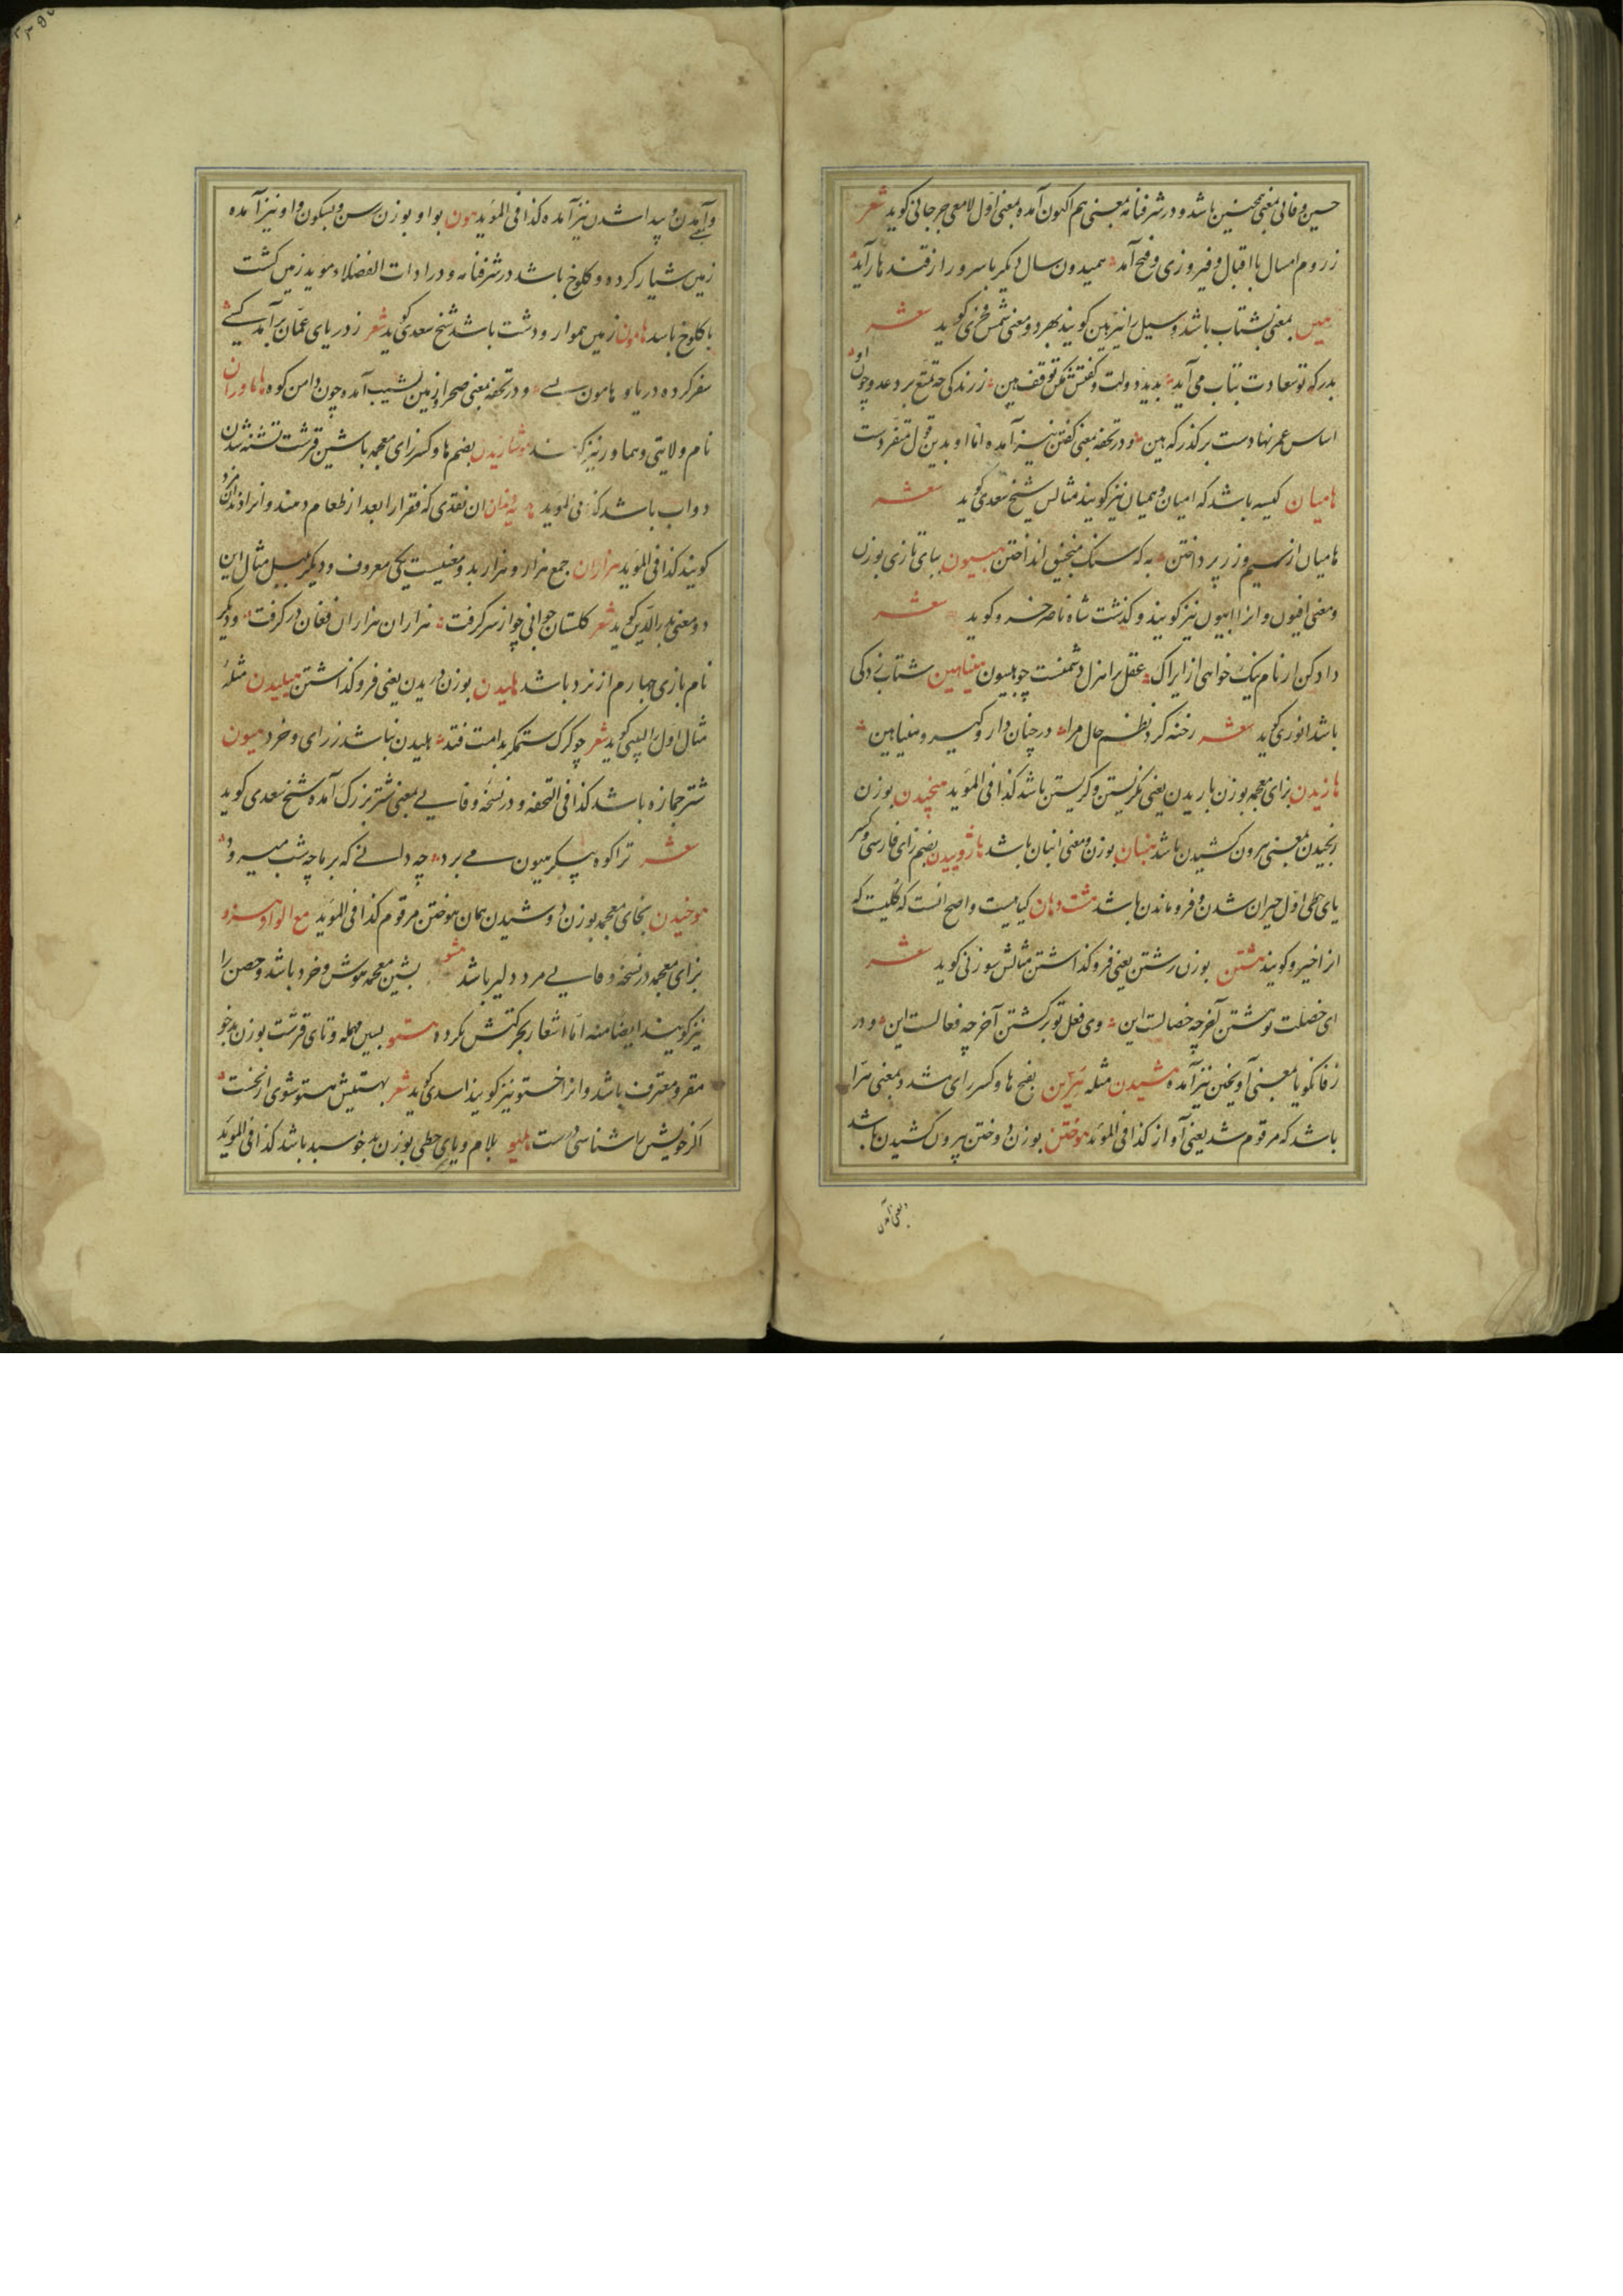 حسین وفائی بمعنی همچنین باشد و در شرفنامه بمعنی هم اکنون آمده بمعنی اول لامعی جرجانی کوید شعر
ز روم امسال با اقبال و فیروزی و فتح آمد همیدون سال دیکر با سرور از قند هار آید
هین بمعنی بشتاب باشد و سیل را نیز هین کویند بهر دو معنی شمس فخری کوید شعر
بدرکه تو سعادت شتاب می آید بدید دولت و کفتش مکن توقف هین ز زندکی چه تمتع برد عدو چون او
اساس عمر نهادست بر کذرکه هین و در تحفه بمعنی کفتن نیز آمده اما او بدین قول متفردست
هامیان کیسه باشد که امیان و همیان نیز کویند مثالش شیخ سعدی کوید شعر
هامیان از سیم و زر پرداختن به که سنک منجنیق انداختن هبیون ببای تازی بوزن
و معنی افیون و انرا ابیون نیز کویند و کذشت شاه ناصر خسرو کوید شعر
داد کن ار نام نیک خواهی ازیراک عقل را هزل دشمنست چو هبیون هیناهین شتاب زدکی
باشد انوری کوید شعر رخنه کرد نظم حال مرا در چنان دار و کیر و هیناهین
هازیدن بزای معجمه بوزن باریدن یعنی نکرستن و کریستن باشد کذا فی المؤید هنجیدن بوزن
رنجیدن بمعنی بیرون کشیدن باشد هنبان بوزن و معنی انبان باشد هاژوییدن بضم زای فارسی و کسر
یای حطی اول حیران شدن و فروماندن باشد هشت دهان کیاهیست و اصح انست که کلیست که
انرا خیرو کویند هشتن بوزن رشتن یعنی فرو کذاشتن مثالش سوزنی کوید شعر
ای خصلت تو هشتن آخر چه خصالست این وی فعل تو برکشتن آخر چه فعالست این و در
زفانکویا بمعنی آویختن نیز آمده هشیدن مثله هرین بفتح ها و کسر رای مشدد بمعنی هرا
باشد که مرقوم شد یعنی آواز کذا فی المؤید هوختن بوزن دوختن بیرون کشیدن باشد
و بمعنی آمدن
و آمدن و پیدا شدن نیز آمده کذا فی المؤید هون بواو بوزن سن و بسکون واو نیز آمده
زمین شیار کرده و کلوخ باشد در شرفنامه و در ادات الفضلاء و موید زمین کشت
با کلوخ باشد هامون زمین هموار و دشت باشد شیخ سعدی کوید شعر ز دریای عمان برآمد کسی
سفر کرده دریا و هامون بسی و در تحفه بمعنی صحرا و زمین نشیب آمده چون دامن کوه هاماوران
نام ولایتی و هماور نیز کویند هوشازیدن بضم ها و کسر زای معجمه با شین قرشت تشنه شدن
دواب باشد کذا فی المؤید ان نقدی که فقرا را بعد از طعام دهند و انرا دندان مزد
کویند کذا فی المؤید هزاران جمع هزار و هزار بد و معنیست یکی معروف و دیکر بلبل مثال این
دو معنی بدر الدین کوید شعر کلستان جوانی چو از سر کرفت هزاران هزاران فغان در کرفت و دیکر
نام بازی چهارم از نرد باشد هلیدن بوزن دریدن یعنی فرو کذاشتن هیلیدن مثله
مثال اول را لبیبی کوید شعر چو کرک ستمکر بدامت فتد هلیدن نباشد ز رای و خرد هیون
شتر جمازه باشد کذا فی التحفه و در نسخه وفایی بمعنی شتر بزرک آمده شیخ سعدی کوید
شعر ترا کوه پیکر هیون می برد چه دانی که بر ما چه شب میرود
هوخیدن بخای معجمه بوزن دوشیدن همان هوختن مرقوم کذا فی المؤید مع الواو هزو
بزای معجمه در نسخه وفایی مرد دلیر باشد هشو بشین معجمه هوش و خرد باشد و حصن را
نیز کویند ایضا منه اما اشعار بحرکتش نکرده هستو بسین مهمله و تای قرشت بوزن بدخو
مقر و معترف باشد و انرا خستو نیز کویند اسدی کوید شعر بهستیش هستو شوی از نخست
اکر خویش را شناسی درست هلیو بلام و یای حطی بوزن بدخو سبد باشد کذا فی المؤید